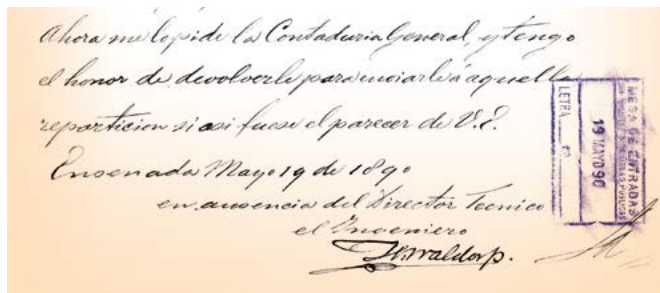 Ahora me lo pide la Contaduria General, y tengo
el honor de devolverle para enviarle á aquella
reparticion si asi fuese el parecer de V.E.
Ensenada Mayo 19 de 1890
en ausencia del Director Tecnico
el Ingeniero
Waldorp.
MESA DE ENTRADAS
OBRAS PUBLICAS
19 MAYO 90
LETRA